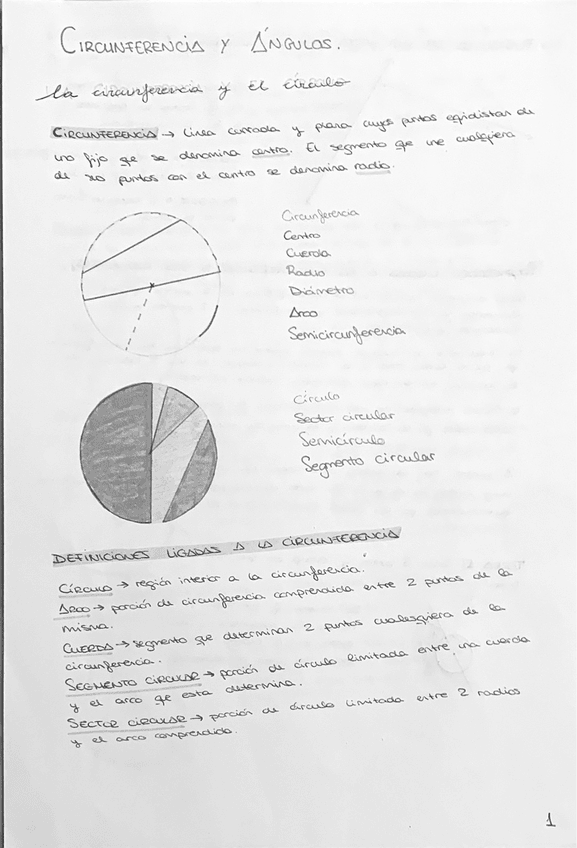 CIRCUNFERENCIA Y ÁNGULOS.
La circunferencia y el círculo
CIRCUNFERENCIA → línea curvada y plana cuyos puntos eqidistan de
uno fijo qe se denomina centro. El segmento qe une cualqiera
de sus puntos con el centro se denomina radio.
Circunferencia
Centro
Cuerda
Radio
Diámetro
Arco
Semicircunferencia
Círculo
Sector circular
Semicírculo
Segmento circular
DEFINICIONES LIGADAS A LA CIRCUNFERENCIA
CÍRCULO → región interior a la circunferencia.
ARCO → porción de circunferencia comprendida entre 2 puntos de la
misma.
CUERDA → segmento qe determinan 2 puntos cualesqiera de la
circunferencia.
SEGMENTO CIRCULAR → porción de círculo limitada entre una cuerda
y el arco qe esta determina.
SECTOR CIRCULAR → porción de círculo limitada entre 2 radios
y el arco comprendido.
1